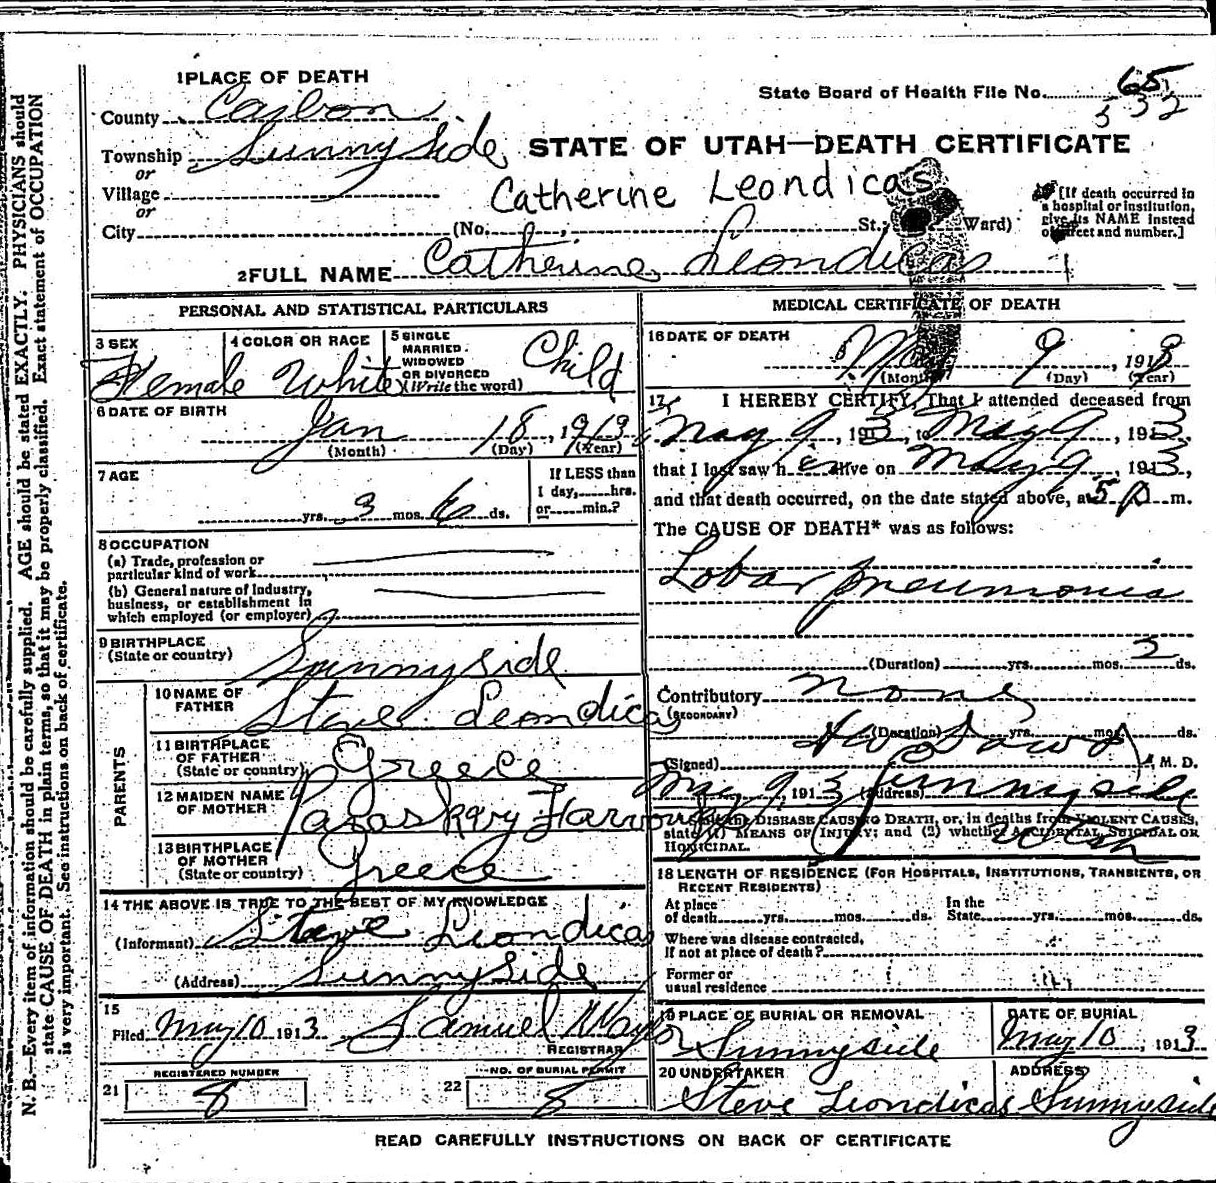 1 PLACE OF DEATH
State Board of Health File No. 65
532
County Carbon
Township Sunnyside
or
Village
or
City (No. , St., Ward)
STATE OF UTAH—DEATH CERTIFICATE
Catherine Leondicas
[If death occurred in a hospital or institution, give its NAME instead of street and number.]
2 FULL NAME Catherine Leondicas
PERSONAL AND STATISTICAL PARTICULARS
3 SEX Female
4 COLOR OR RACE White
5 SINGLE MARRIED. WIDOWED OR DIVORCED (Write the word) Child
6 DATE OF BIRTH
Jan 18, 1913
(Month) (Day) (Year)
7 AGE
yrs. 3 mos. ds.
If LESS than 1 day, hrs. or min.?
8 OCCUPATION
(a) Trade, profession or particular kind of work
(b) General nature of industry, business, or establishment in which employed (or employer)
9 BIRTHPLACE
(State or country) Sunnyside
PARENTS
10 NAME OF FATHER Steve Leondicas
11 BIRTHPLACE OF FATHER (State or country) Greece
12 MAIDEN NAME OF MOTHER
13 BIRTHPLACE OF MOTHER (State or country) Greece
14 THE ABOVE IS TRUE TO THE BEST OF MY KNOWLEDGE
(Informant) Steve Leondicas
(Address) Sunnyside
15
Filed May 10 1913 Samuel
REGISTRAR
21 REGISTERED NUMBER 8
22 NO. OF BURIAL PERMIT 8
MEDICAL CERTIFICATE OF DEATH
16 DATE OF DEATH
May 9, 1913
(Month) (Day) (Year)
17 I HEREBY CERTIFY, That I attended deceased from
May 9, 1913, to May 9, 1913,
that I last saw her alive on May 9, 1913,
and that death occurred, on the date stated above, at 5 P m.
The CAUSE OF DEATH* was as follows:
Lobar pneumonia
(Duration) yrs. mos. 2 ds.
Contributory none
(SECONDARY)
(Duration) yrs. mos. ds.
(Signed) M. D.
May 9, 1913 (Address) Sunnyside
Utah
DISEASE CAUSING DEATH, or, in deaths from VIOLENT CAUSES, state (1) MEANS OF INJURY; and (2) whether ACCIDENTAL, SUICIDAL OR HOMICIDAL.
18 LENGTH OF RESIDENCE (FOR HOSPITALS, INSTITUTIONS, TRANSIENTS, OR RECENT RESIDENTS)
At place of death yrs. mos. ds. In the State yrs. mos. ds.
Where was disease contracted, If not at place of death?
Former or usual residence
19 PLACE OF BURIAL OR REMOVAL Sunnyside
DATE OF BURIAL May 10, 1913
20 UNDERTAKER Steve Leondicas
ADDRESS Sunnyside
READ CAREFULLY INSTRUCTIONS ON BACK OF CERTIFICATE
N. B.—Every item of information should be carefully supplied. AGE should be stated EXACTLY. PHYSICIANS should
state CAUSE OF DEATH in plain terms, so that it may be properly classified. Exact statement of OCCUPATION
is very important. See instructions on back of certificate.